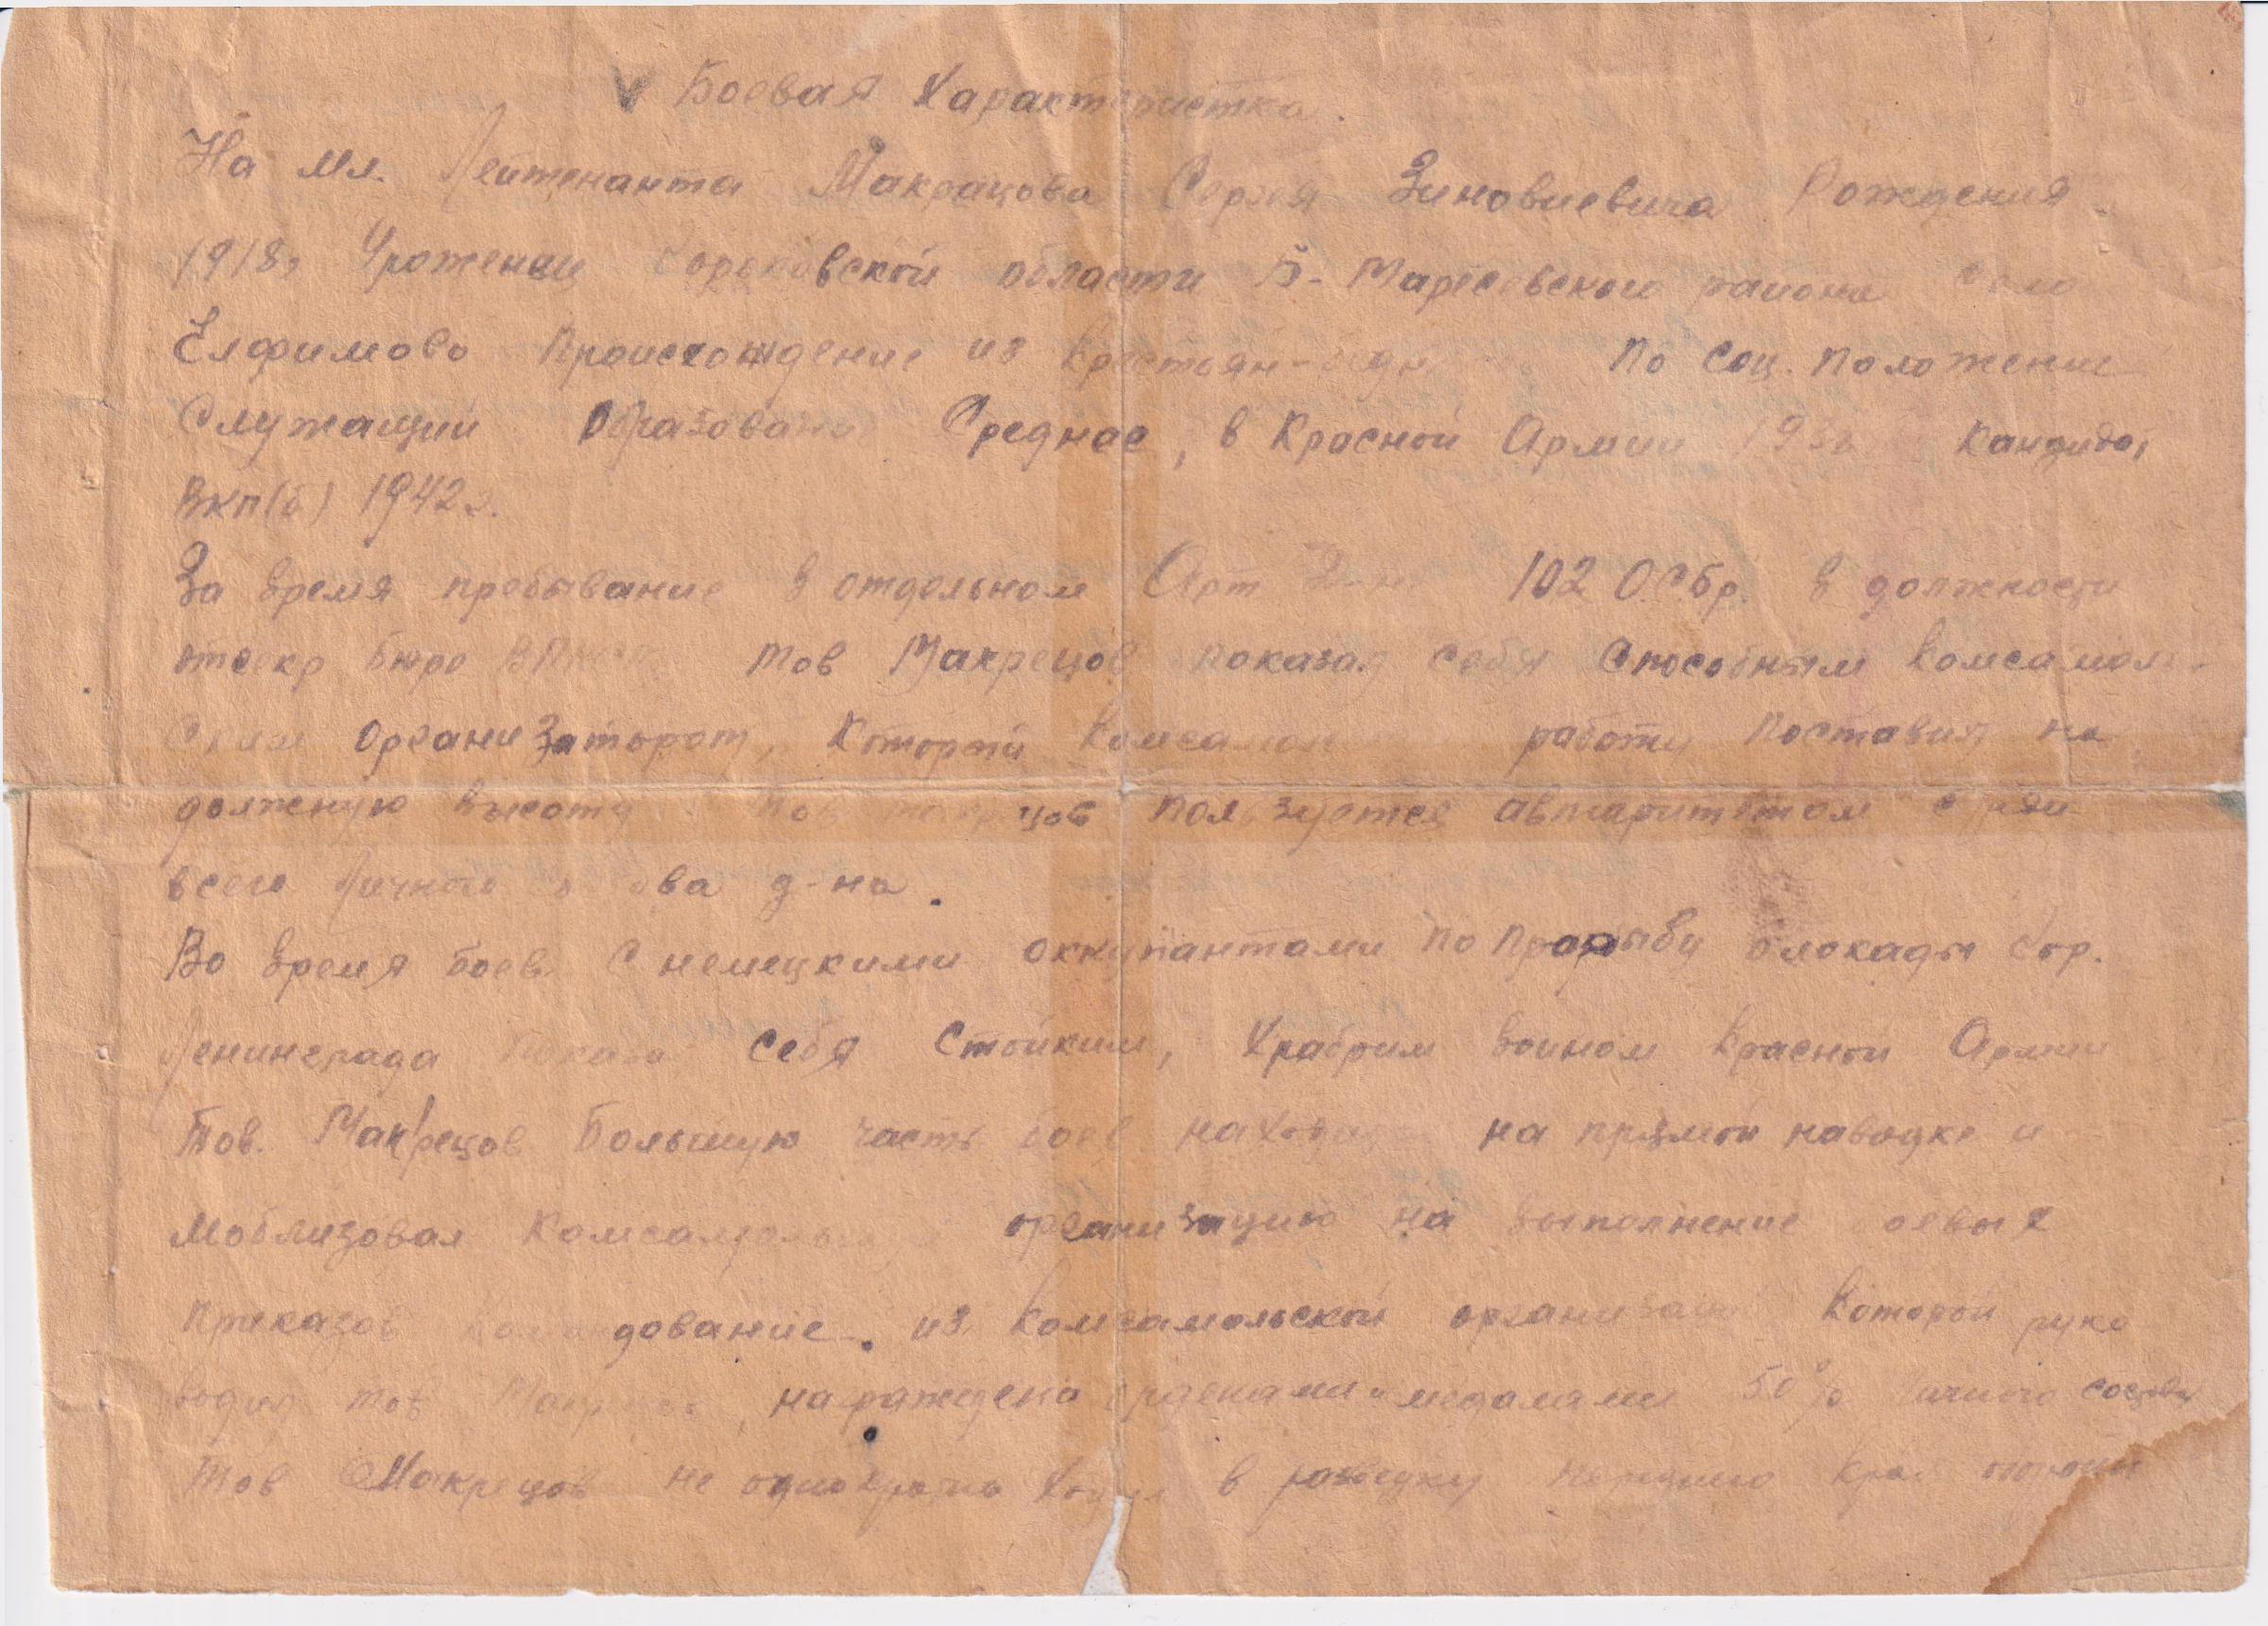 Боевая Характеристика.
На Мл. Лейтенанта Макрецова Сергея Зиновиевича Рождения
1918г Уроженец Горьковской области Б-Маресевского района Село
Елфимово Происхождение из крестьян-бедн По соц. положение
Служащий Образование Среднее, в Красной Армии 193 Кандидат
ВКП(б) 1942г.
За время пребывание в отдельном Арт Д-не 102 ОСбр. в должности
отсекр бюро тов Макрецов показал себя Способным комсамоль-
ским организатором, который комсамоль работу поставил на
долженую высоту тов Макрецов пользуется автаритетом среди
всего личного состава д-на.
Во время боев с немецкими оккупантами по прорыву блокады гор.
Ленинграда показал себя Стойким, Храбрим воином красной Армии
Тов. Макрецов Большую часть боев находился на прямой наводке и
моблизовал комсамольскую организацию на выполнение боевых
приказов командование. из комсамольской организации которой руко
водил тов Макрецов, награждено орденами и медалями 50% личного состава
Тов Макрецов не однократно ходил в разведку переднего края обороны